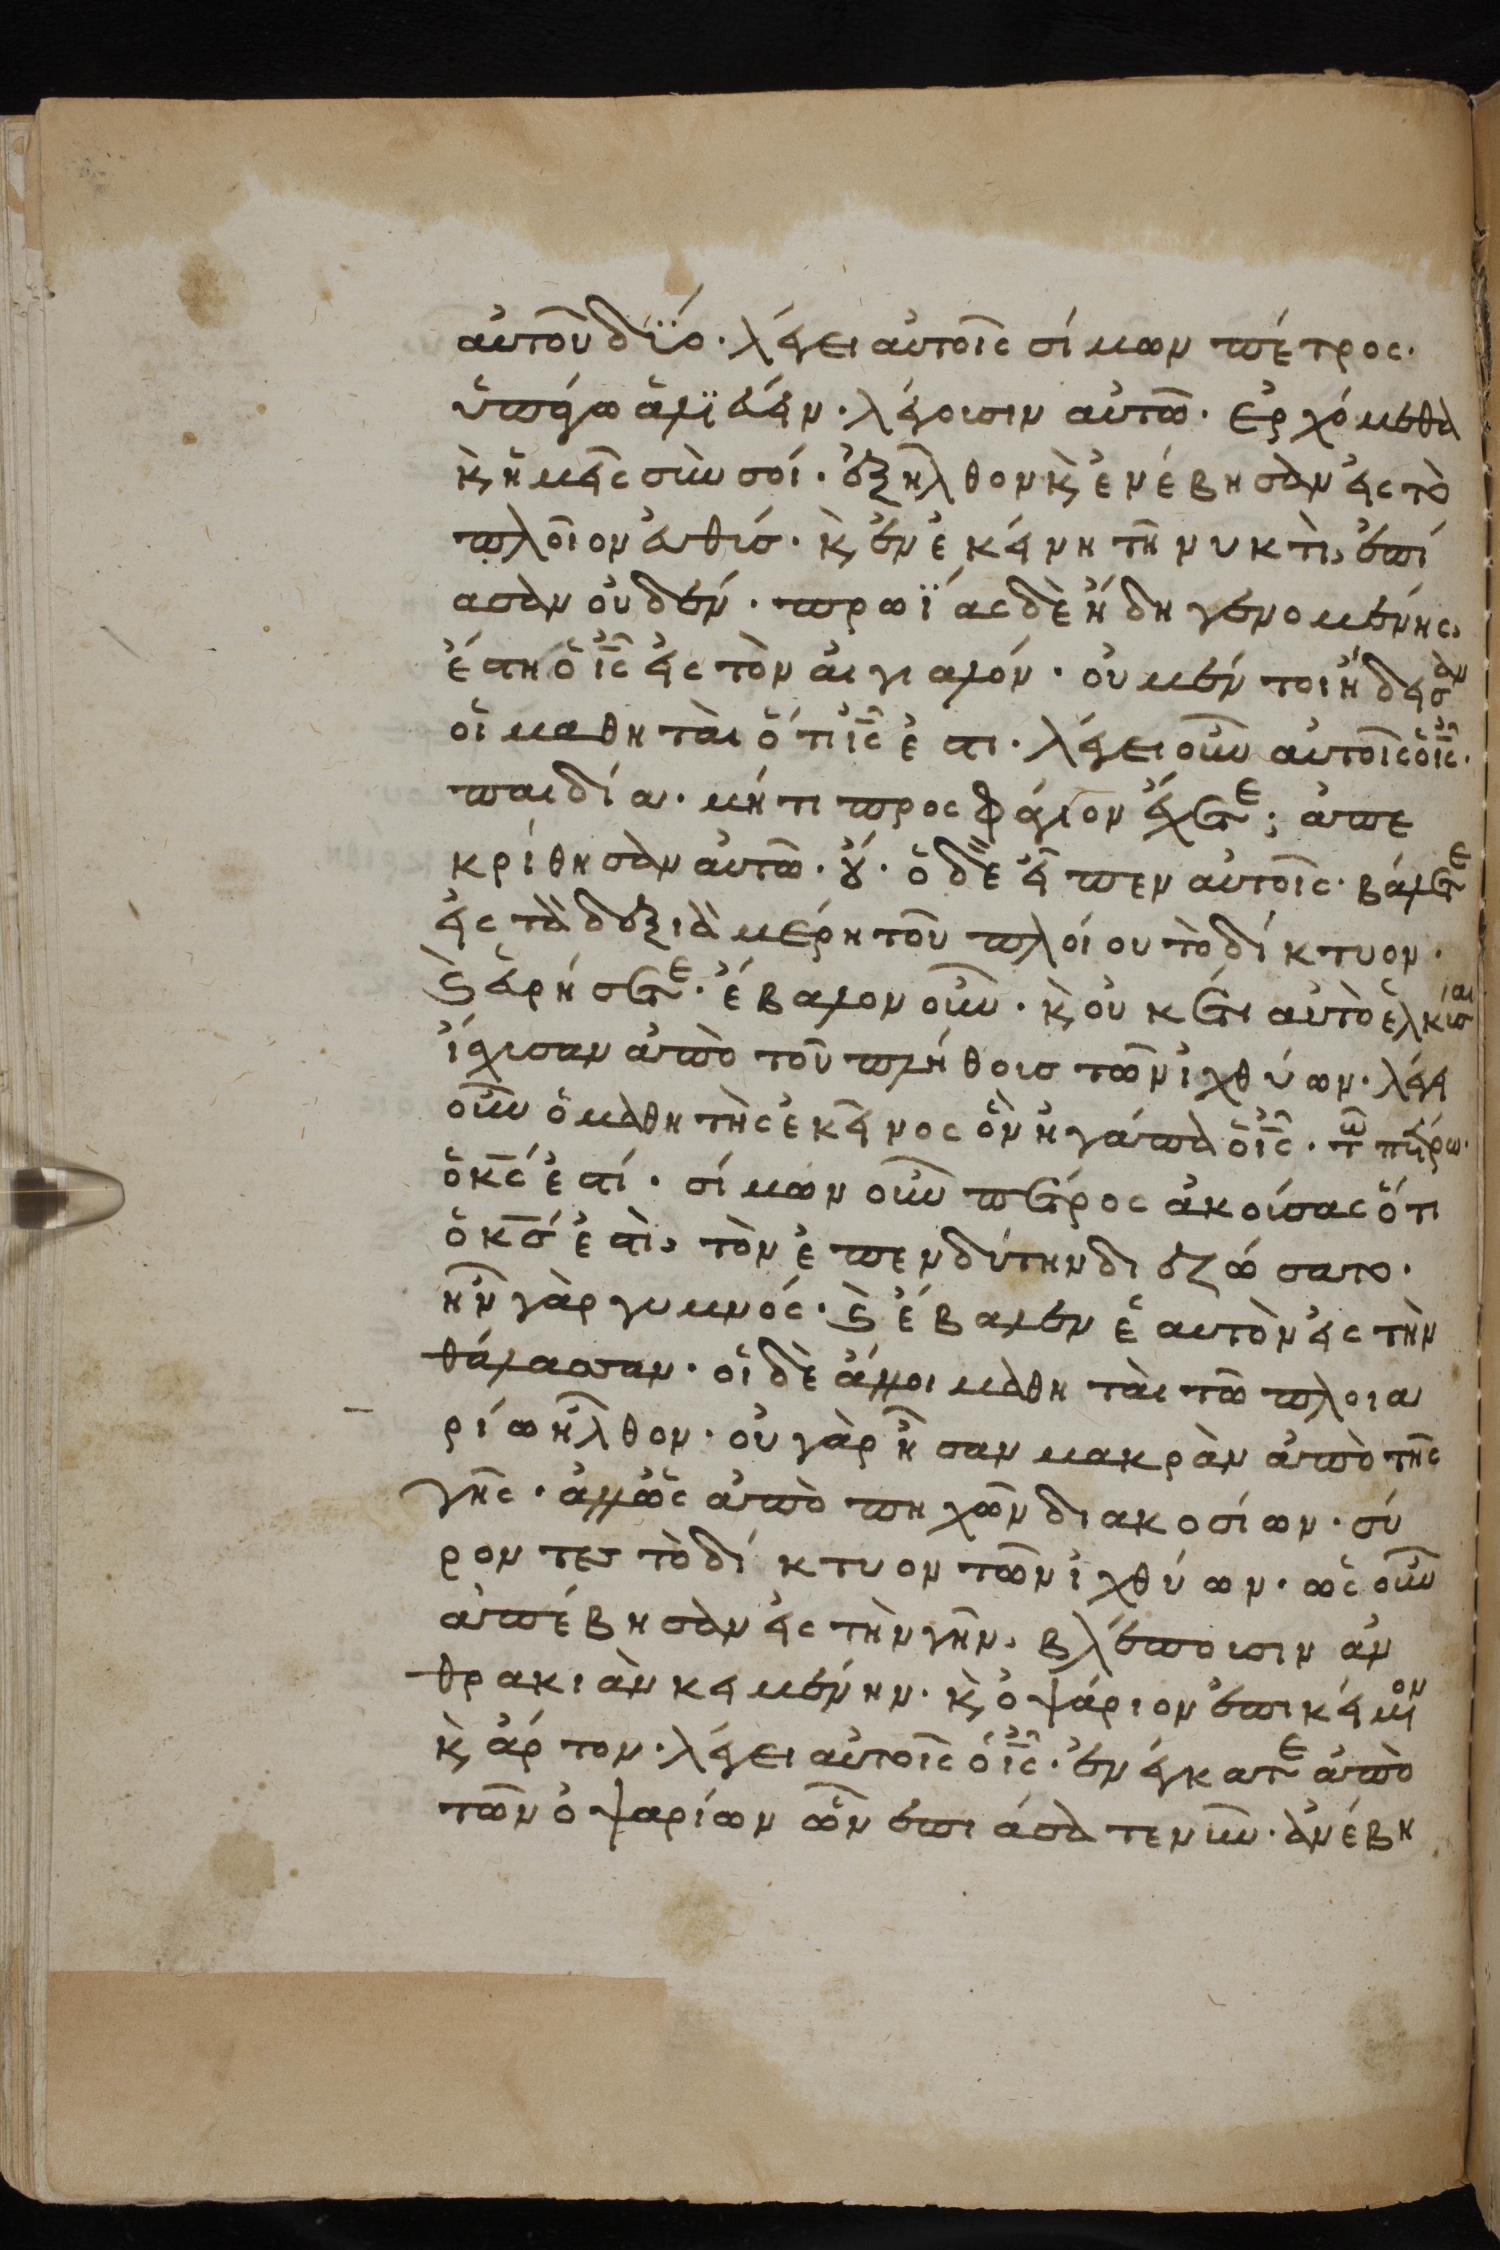 αὐτοῦ δϊό· λέγει αὐτοῖς σίμων πέτρος·
ὑπάγω ἁλϊεύειν· λέγουσιν αὐτῶ· ἐρχόμεθα
κ ἡμεῖς σὺν σοί· ἐξῆλθον κ ἐνέβησαν εἰς τὸ
πλοῖον εὐθύσ· κ ἐν ἐκείνη τῆ νυκτὶ, ἐπί
ασαν οὐδέν· πρωΐας δὲ ἤδη γενομένης,
ἔστη ὁ ις εἰς τὸν αἰγιαλόν· οὐ μέντοι ἤδεισαν
οἱ μαθηταὶ ὅτι ις ἐστι· λέγει οὖν αὐτοῖς ὁ ις·
παιδία· μήτι προσφάγιον ἔχετε; ἀπε
κρίθησαν αὐτῶ· οὔ· ὁ δὲ εἶπεν αὐτοῖς· βάλετε
εἰς τὰ δεξιὰ μέρη τοῦ πλοίου τὸ δίκτυον·
κ εὑρήσετε· ἔβαλον οὖν· κ οὐκέτι αὐτὸ ἑλκύσαι
ἴσχυσαν ἀπὸ τοῦ πλήθουσ τῶν ἰχθύων· λέγει
οὖν ὁ μαθητὴς ἐκεῖνος ὃν ἠγάπα ὁ ις· τῶ πέτρω·
ὁ κς ἐστί· σίμων οὖν πέτρος ἀκούσας ὅτι
ὁ κσ ἐστὶ, τὸν ἐπενδύτην διεζώσατο·
ἦν γὰρ γυμνός· κ ἔβαλεν ἑαυτὸν εἰς τὴν
θάλασσαν· οἱ δὲ ἄλλοι μαθηταὶ τῶ πλοια
ρίω ἦλθον· οὐ γὰρ ἦσαν μακρὰν ἀπὸ τῆς
γῆς· ἀλλ ὡς ἀπὸ πηχῶν διακοσίων· σύ
ροντεσ τὸ δίκτυον τῶν ἰχθύων· ὡς οὖν
ἀπέβησαν εἰς τὴν γῆν, βλέπουσιν ἀν
θρακιὰν κειμένην· κ ὀψάριον ἐπικείμενον
κ ἄρτον· λέγει αὐτοῖς ὁ ις· ἐνέγκατε ἀπὸ
τῶν ὀψαρίων ὧν ἐπιάσατε νῦν· ἀνέβη